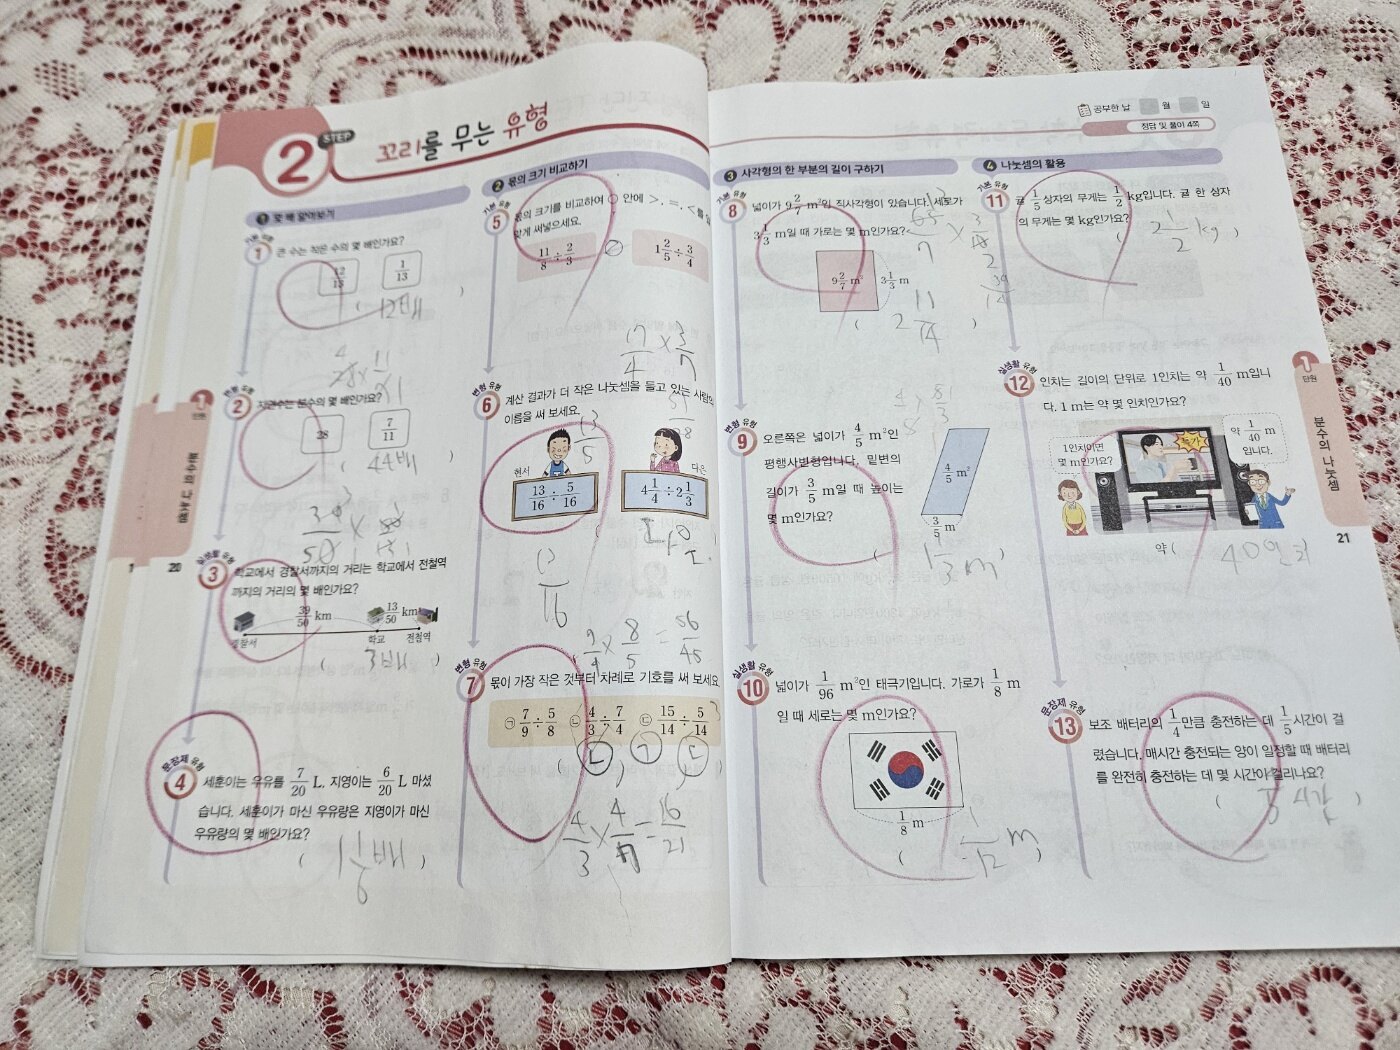 2 STEP 꼬리를 무는 유형
공부한 날 월 일
정답 및 풀이 4쪽
1 몇 배 알아보기
기본 유형
1 큰 수는 작은 수의 몇 배인가요?
12/13 1/13
( 12배 )
4 28 × 11/7 1
변형 유형
2 자연수는 분수의 몇 배인가요?
28 7/11
( 44배 )
실생활 유형
3 학교에서 경찰서까지의 거리는 학교에서 전철역
까지의 거리의 몇 배인가요?
39/50 km 13/50 km
경찰서 학교 전철역
( 3배 )
문장제 유형
4 세훈이는 우유를 7/20 L, 지영이는 6/20 L 마셨
습니다. 세훈이가 마신 우유량은 지영이가 마신
우유량의 몇 배인가요?
( 1 1/6 배 )
2 몫의 크기 비교하기
기본 유형
5 몫의 크기를 비교하여 ○ 안에 >, =, <를 알
맞게 써넣으세요.
11/8 ÷ 2/3 1 2/5 ÷ 3/4
17/4 × 3/7
변형 유형
6 계산 결과가 더 작은 나눗셈을 들고 있는 사람의
이름을 써 보세요.
13/5
현서 다은
13/16 ÷ 5/16 4 1/4 ÷ 2 1/3
13/16
7/9 × 8/5 = 56/45
변형 유형
7 몫이 가장 작은 것부터 차례로 기호를 써 보세요.
㉠ 7/9 ÷ 5/8 ㉡ 4/3 ÷ 7/4 ㉢ 15/14 ÷ 5/14 3
4/3 × 4/7 = 16/21
3 사각형의 한 부분의 길이 구하기
기본 유형
8 넓이가 9 2/7 m²인 직사각형이 있습니다. 세로가
3 1/3 m일 때 가로는 몇 m인가요?
65/7 × 3/10
9 2/7 m² 3 1/3 m
39/14
( 2 11/14 )
변형 유형
9 오른쪽은 넓이가 4/5 m²인
평행사변형입니다. 밑변의
길이가 3/5 m일 때 높이는
몇 m인가요?
4/5 m²
3/5 m
( 1 1/3 m
실생활 유형
10 넓이가 1/96 m²인 태극기입니다. 가로가 1/8 m
일 때 세로는 몇 m인가요?
1/8 m
( 1/12 m )
4 나눗셈의 활용
기본 유형
11 귤 1/5 상자의 무게는 1/2 kg입니다. 귤 한 상자
의 무게는 몇 kg인가요?
( 2 1/2 kg )
실생활 유형
12 인치는 길이의 단위로 1인치는 약 1/40 m입니
다. 1 m는 약 몇 인치인가요?
1인치이면
몇 m인가요?
특가
약 1/40 m
입니다.
약 ( 40인치
문장제 유형
13 보조 배터리의 1/4만큼 충전하는 데 1/5시간이 걸
렸습니다. 매시간 충전되는 양이 일정할 때 배터리
를 완전히 충전하는 데 몇 시간이 걸리나요?
1 단원
분수의 나눗셈
20
21